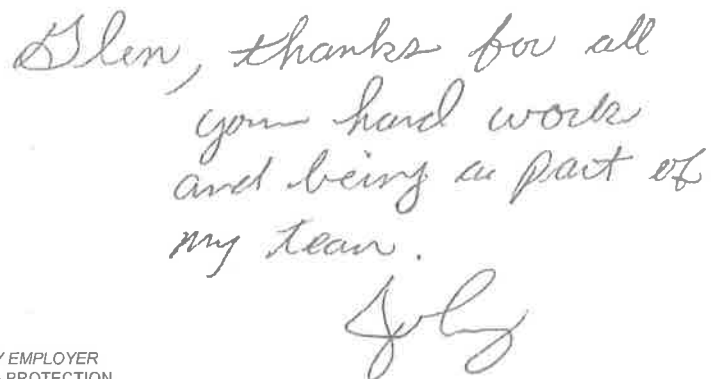 Glen, thanks for all
your hard work
and being a part of
my team.
Y EMPLOYER
PROTECTION